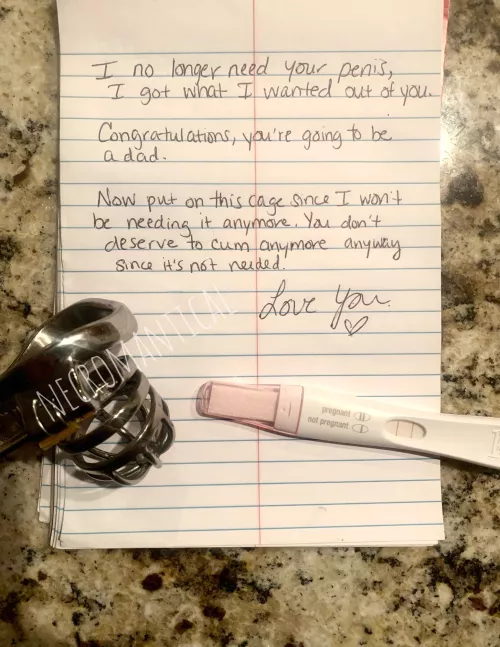 I no longer need your penis,
I got what I wanted out of you.
Congratulations, you're going to be
a dad.
Now put on this cage since I won't
be needing it anymore. You don't
deserve to cum anymore anyway
since it's not needed.
Love You.
NECROMANTICAL
pregnant
not pregnant